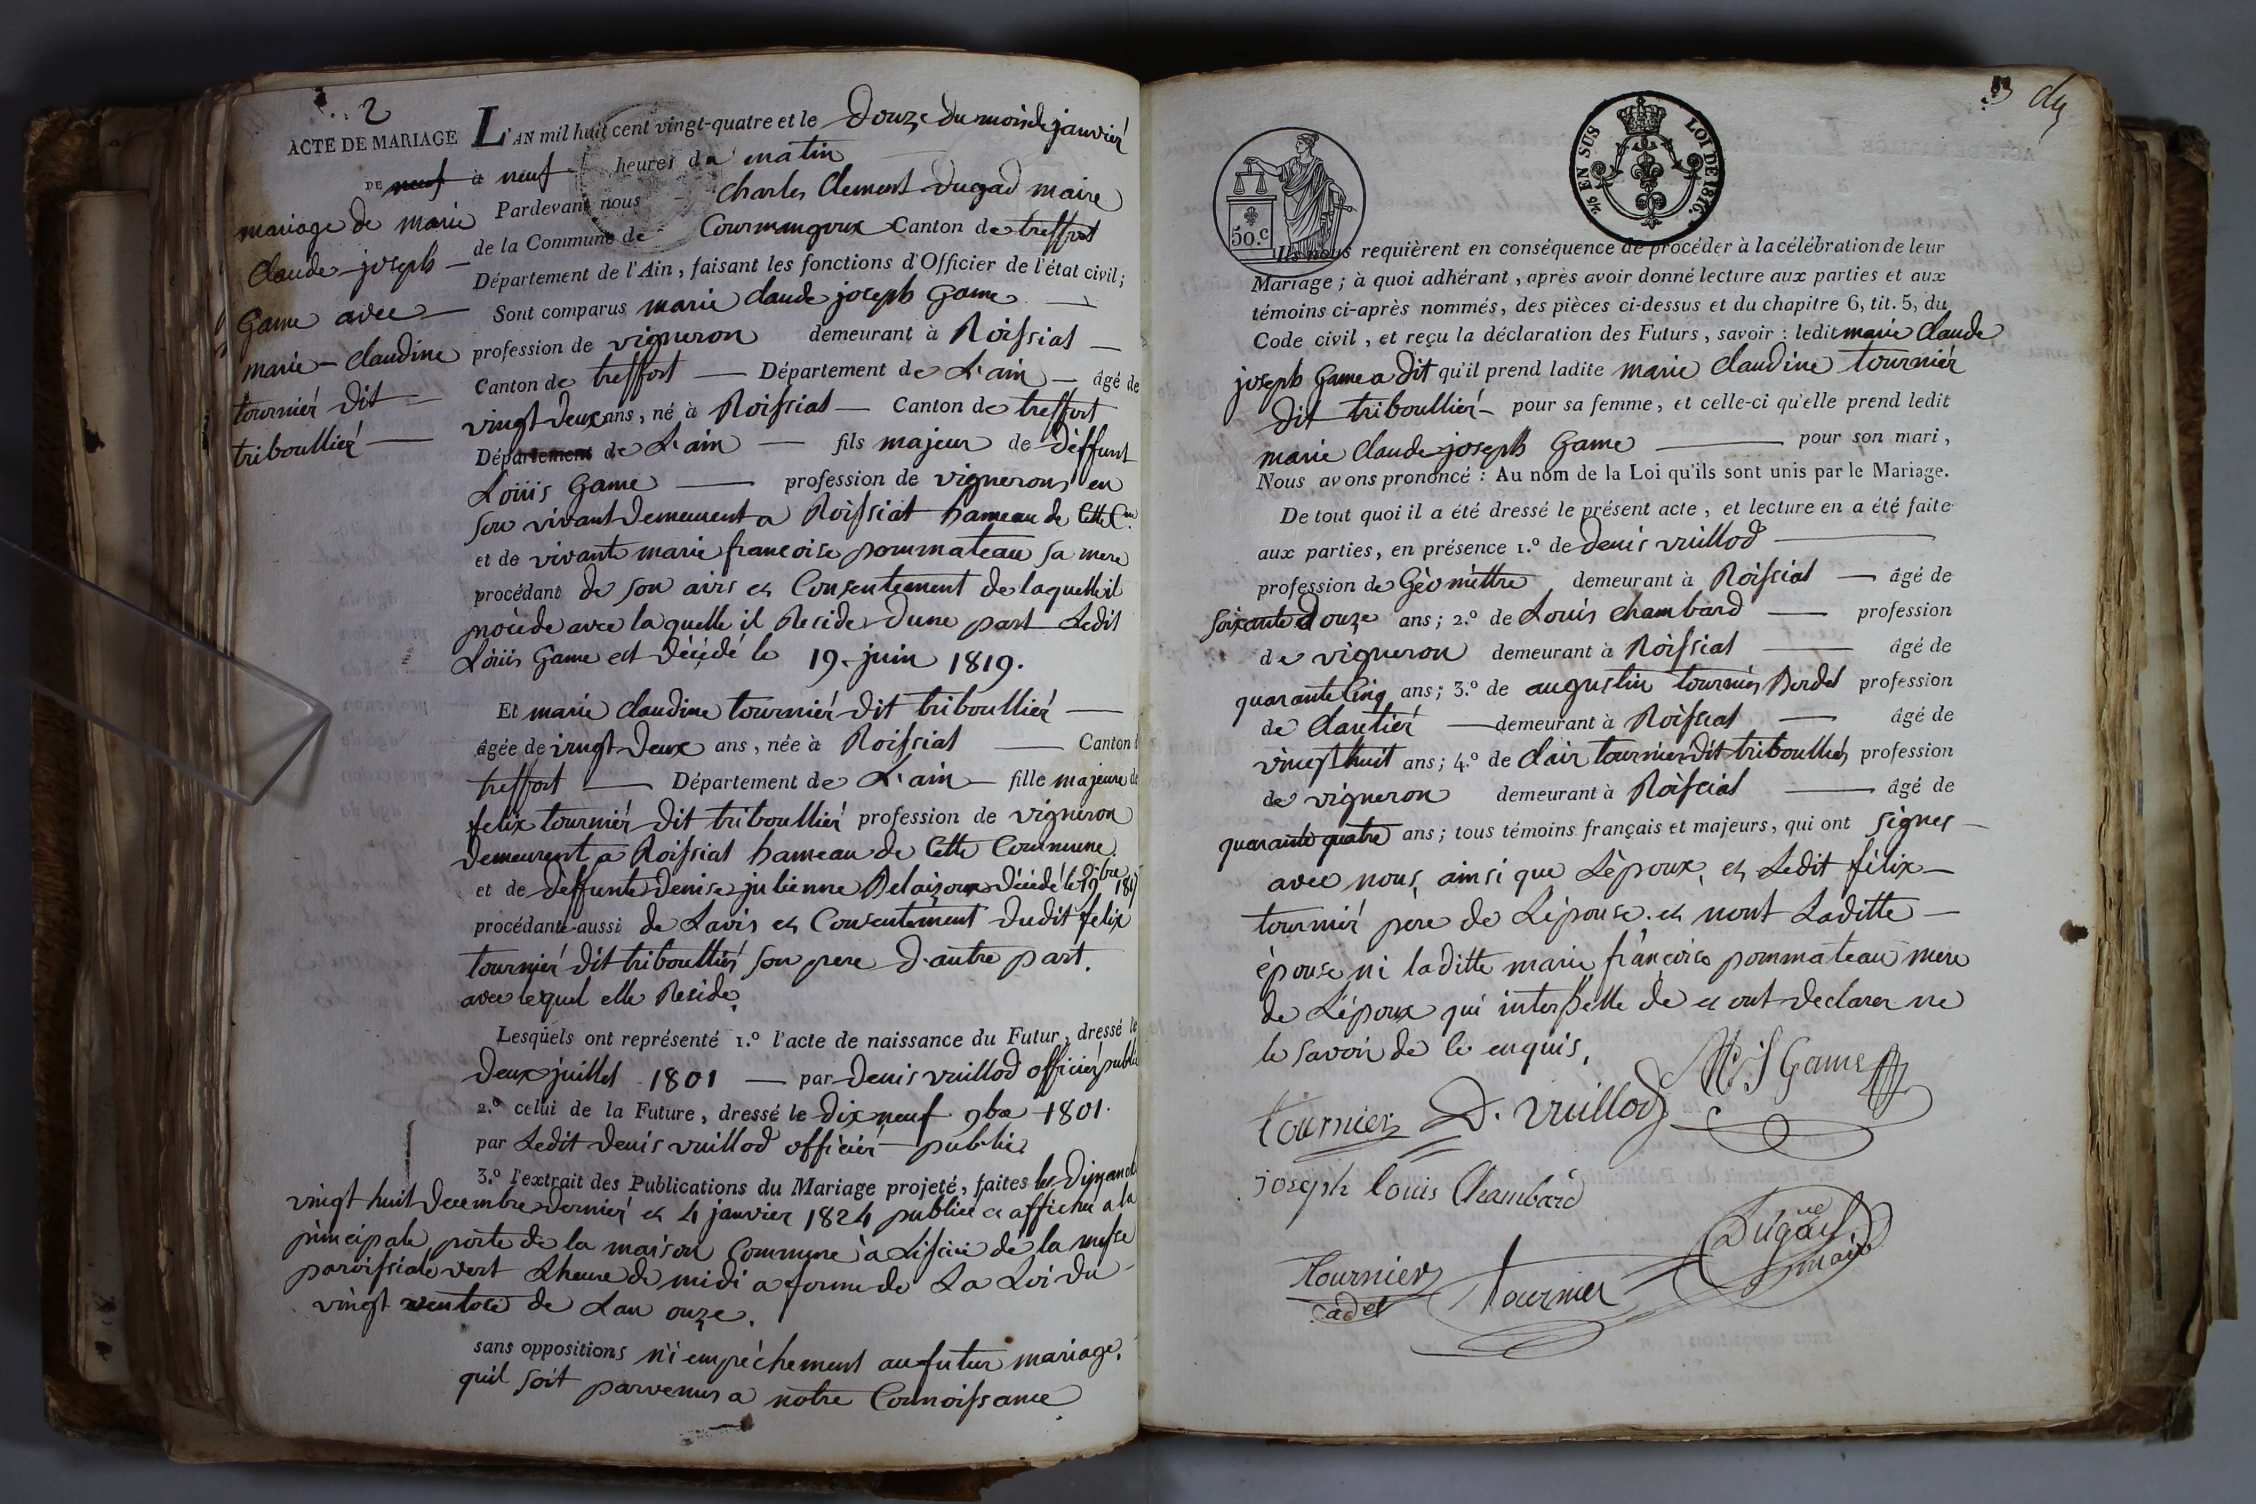 2
ACTE DE MARIAGE
DE neuf
mariage de marie
Claude joseph
Game avec
marie claudine
tournier dit
triboullier
L'AN mil huit cent vingt-quatre et le Douze du mois de janvier
à neuf heures du matin
Pardevant nous Charles Clement Dugad maire
de la Commune de Courmangoux Canton de treffort
Département de l'Ain, faisant les fonctions d'Officier de l'état civil;
Sont comparus marie claude joseph Game
profession de vigneron demeurant à Roissiat
Canton de treffort Département de L'ain âgé de
vingt deux ans, né à Roissiat Canton de treffort
Département de L'ain fils majeur de deffunt
Loüis Game profession de vigneron en
son vivant demeurent a Roissiat hameau de Cette Cne
et de vivante marie francoise pommateau sa mere
procédant de son avis et Consentement de laquelle il
procède avec laquelle il Reside d'une part Ledit
Loüis Game est décédé le 19 juin 1819.
Et marie claudine tournier dit triboullier
âgée de vingt deux ans, née à Roissiat Canton d
treffort Département de L'ain fille majeure de
felix tournier dit triboullier profession de vigneron
demeurent a Roissiat hameau de Cette Commune
et de deffunte denise julienne décédé le
procédante aussi de Lavis et Consentement dudit felix
tournier dit triboullier son pere d'autre part.
avec lequel elle Reside.
Lesquels ont représenté 1.º l'acte de naissance du Futur, dressé le
deux juillet 1801 par denis vuillod officier public
2.º celui de la Future, dressé le dix neuf 9bre 1801.
par Ledit denis vuillod officier public
3.º l'extrait des Publications du Mariage projeté, faites les Dimanch
vingt huit decembre dernier et 4 janvier 1824 publiée et affichée a la
principale porte de la maison Commune à Lissüe de la messe
paroissiale vert Lheure de midi a forme de La Loi du
vingt ventose de Lan onze.
sans oppositions ni empéchement au futur mariage,
quil soit parvenus a notre Connoissance
3
50.c
2/6 EN SUS LOI DE 1816.
Ils nous requièrent en conséquence de procéder à la célébration de leur
Mariage; à quoi adhérant, après avoir donné lecture aux parties et aux
témoins ci-après nommés, des pièces ci-dessus et du chapitre 6, tit. 5, du
Code civil, et reçu la déclaration des Futurs, savoir: ledit marie Claude
joseph Game a dit qu'il prend ladite marie claudine tournier
dit triboullier pour sa femme, et celle-ci qu'elle prend ledit
marie claude joseph Game pour son mari,
Nous avons prononcé: Au nom de la Loi qu'ils sont unis par le Mariage.
De tout quoi il a été dressé le présent acte, et lecture en a été faite
aux parties, en présence 1.º de denis vuillod
profession de Géomèttre demeurant à Roissiat âgé de
soixante douze ans; 2.º de Louis chambard profession
de vigneron demeurant à Roissiat âgé de
quarante Cinq ans; 3.º de augustin tournier profession
de Clautier demeurant à Roissiat âgé de
vingt huit ans; 4.º de clair tournier dit triboullier profession
de vigneron demeurant à Roissiat âgé de
quarante quatre ans; tous témoins français et majeurs, qui ont signes
avec nous, ainsi que Lépoux, et Ledit félix
tournier père de Lépouse. et nont Laditte
épouse ni laditte marie françoise pommateau mere
de Lépoux qui interpelle de et ont declarer ne
le savoir de ce enquis.
Game
tournier D. vuillod
joseph louis Chambard
Tournier
cadet
tournier
Dugad
maire